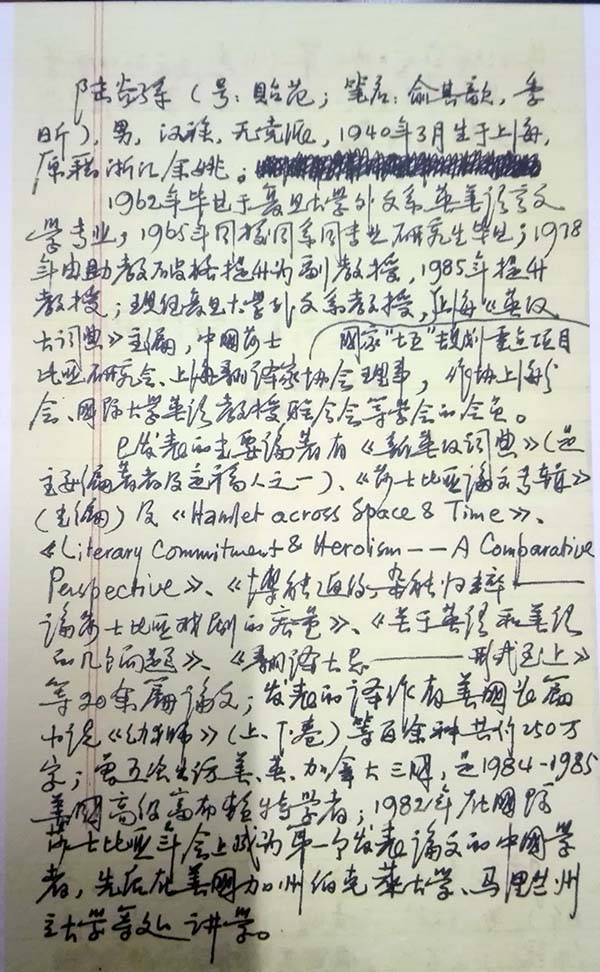 陆谷孙（号：贻范；笔名：俞其歆，季
昕），男，汉族，无党派，1940年3月生于上海，
原籍浙江余姚。
1962年毕业于复旦大学外文系英美语言文
学专业，1965年同校同系同专业研究生毕业；1978
年由助教破格提升为副教授，1985年提升
教授；现任复旦大学外文系教授，上海《英汉
大词典》主编，中国莎士 国家"七五"规划重点项目
比亚研究会、上海翻译家协会理事，作协上海分
会、国际大学英语教授联合会等学会的会员。
已发表的主要论著有《新英汉词典》（是
主要编著者及定稿人之一）、《莎士比亚论文专辑》
（主编）及《Hamlet across Space & Time》、
《Literary Commitment & Heroism -- A Comparative
Perspective》、《博能返约，杂能归粹——
论莎士比亚戏剧的容量》、《关于英语和美语
的几个问题》、《翻译大忌——形式至上》
等20余篇论文；发表的译作有美国长篇
小说《幼狮》（上、下卷）等百余种共约250万
字；曾五次出访美、英、加拿大三国，是1984-1985
美国高级富布赖特学者；1982年在国际
莎士比亚年会上成为第一个发表论文的中国学
者，先后在美国加州伯克莱大学、马里兰州
立大学等处讲学。